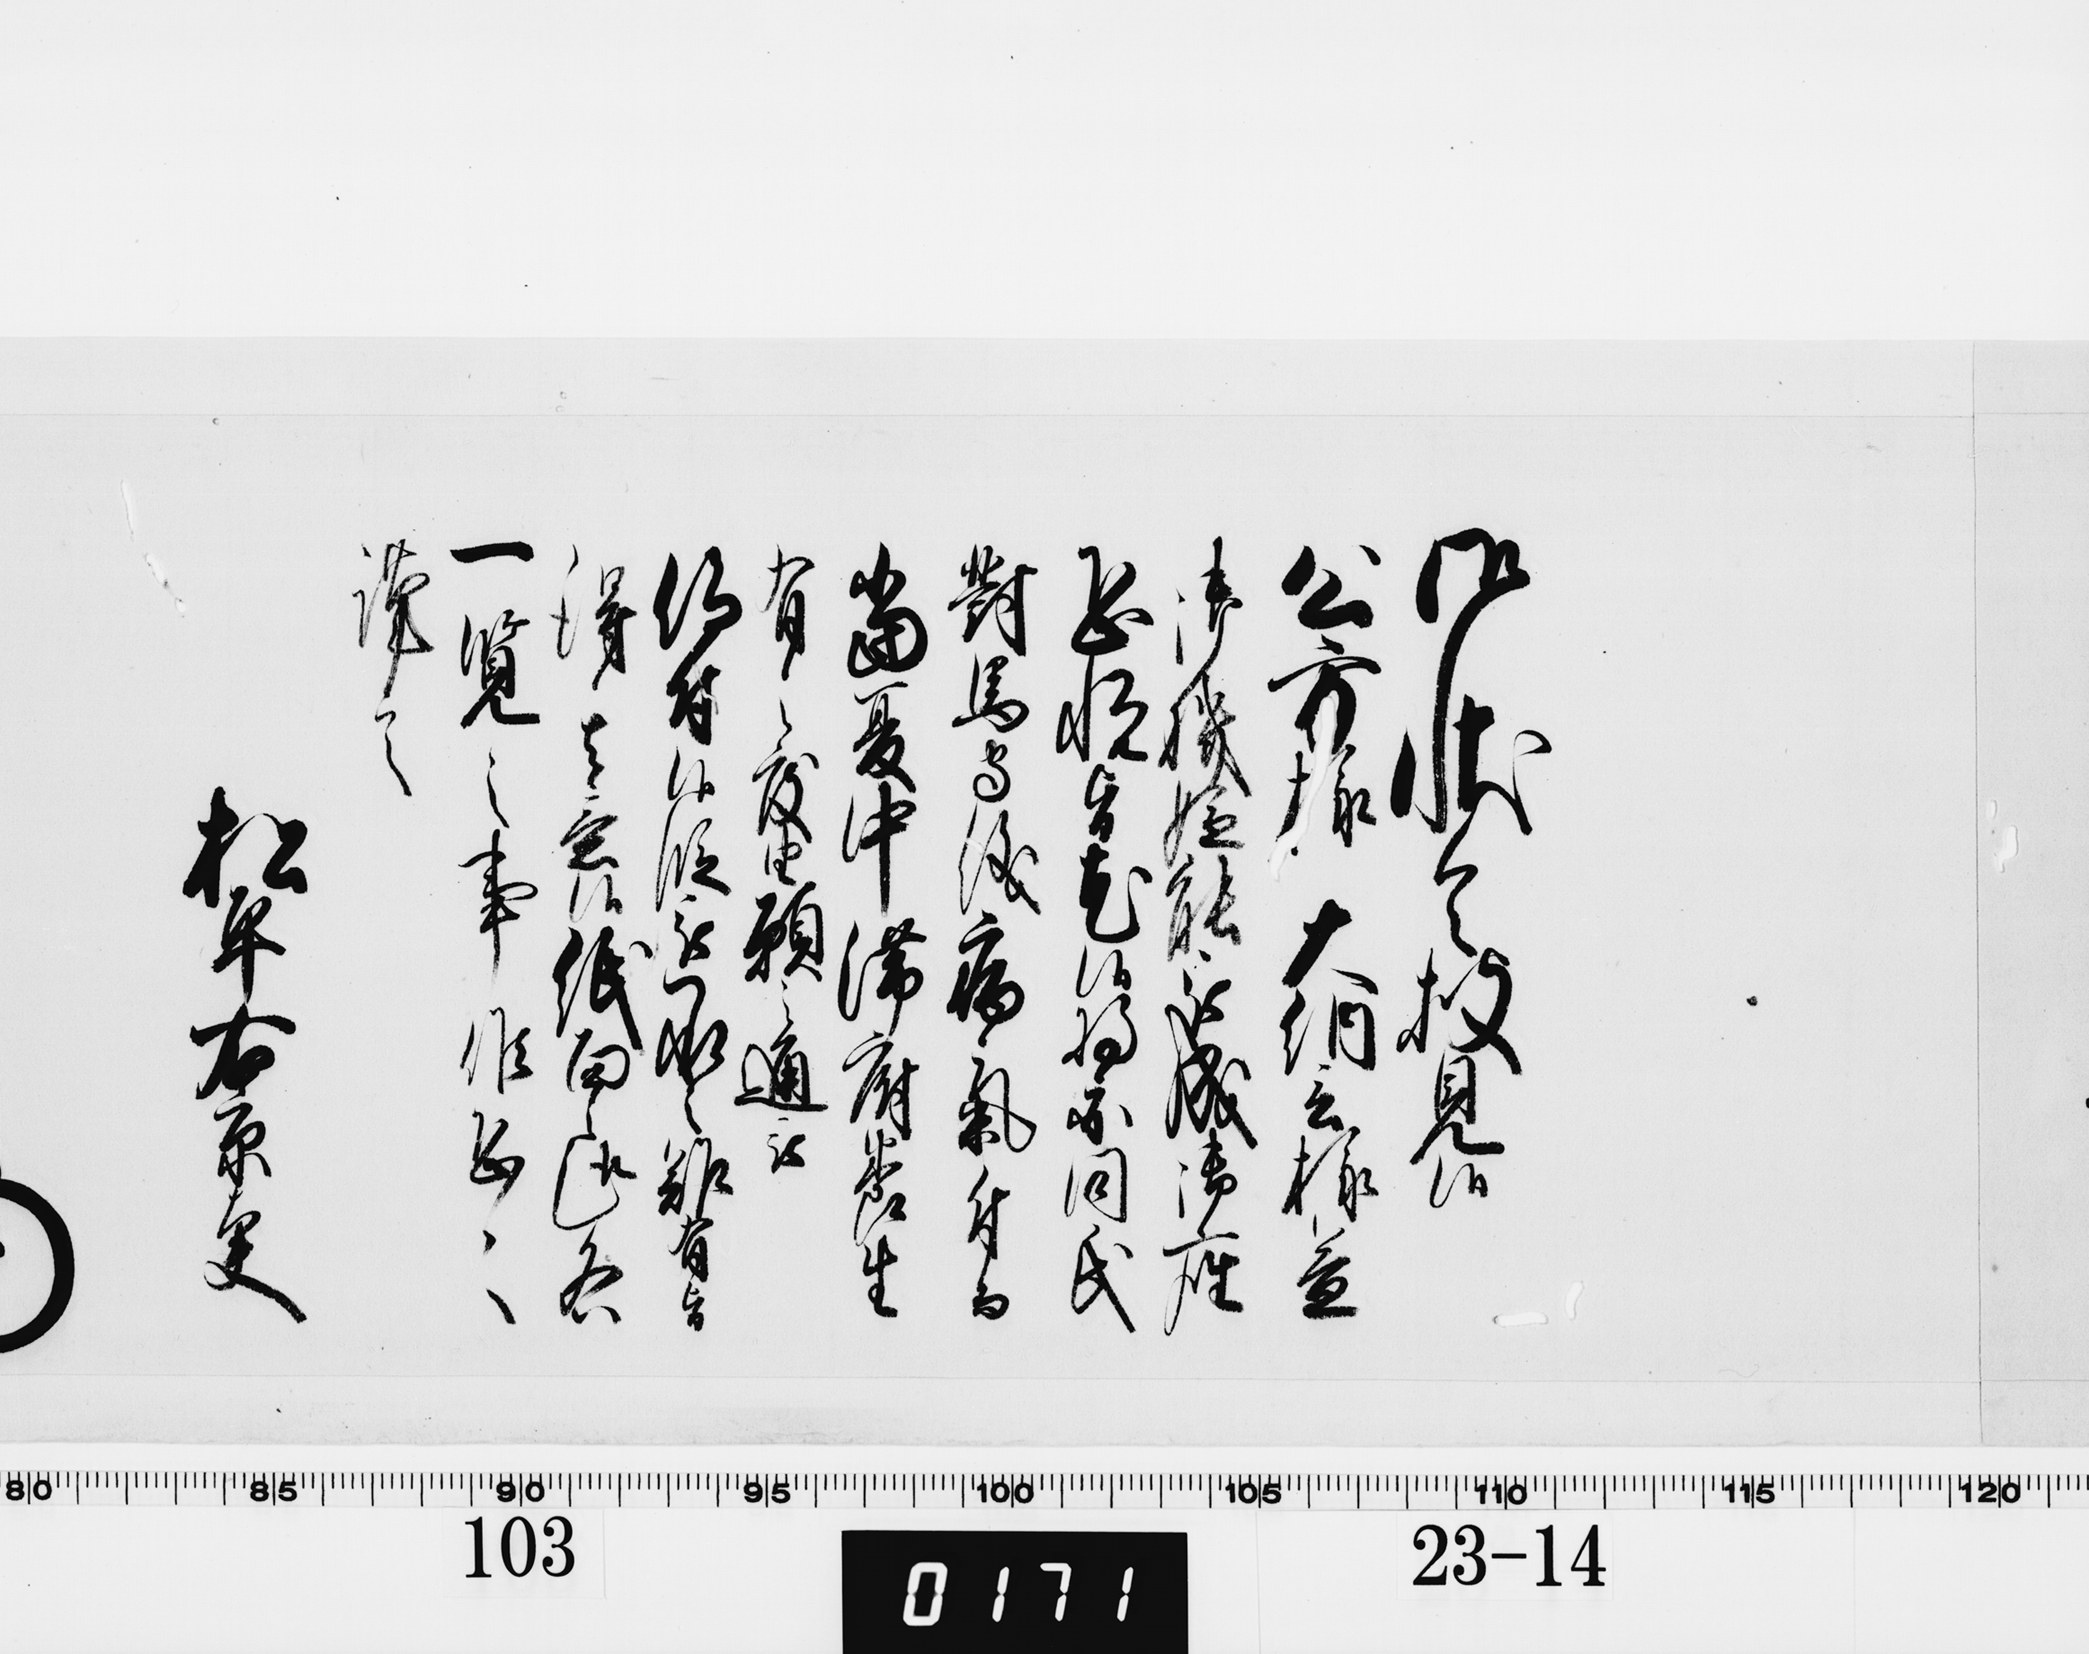 御状令披見候
公方様 大納言様益
御機嫌能被成御座
恐悦旨尤候将亦同氏
対馬守儀病気付而
当夏中滞府養生
有之度由願之通被
仰付候段被承之難有旨
得其意候紙面之趣各
一覧之事候恐々
謹言
松平右京大夫
80 85 90 95 100 105 110 115 120
103
0171
23-14